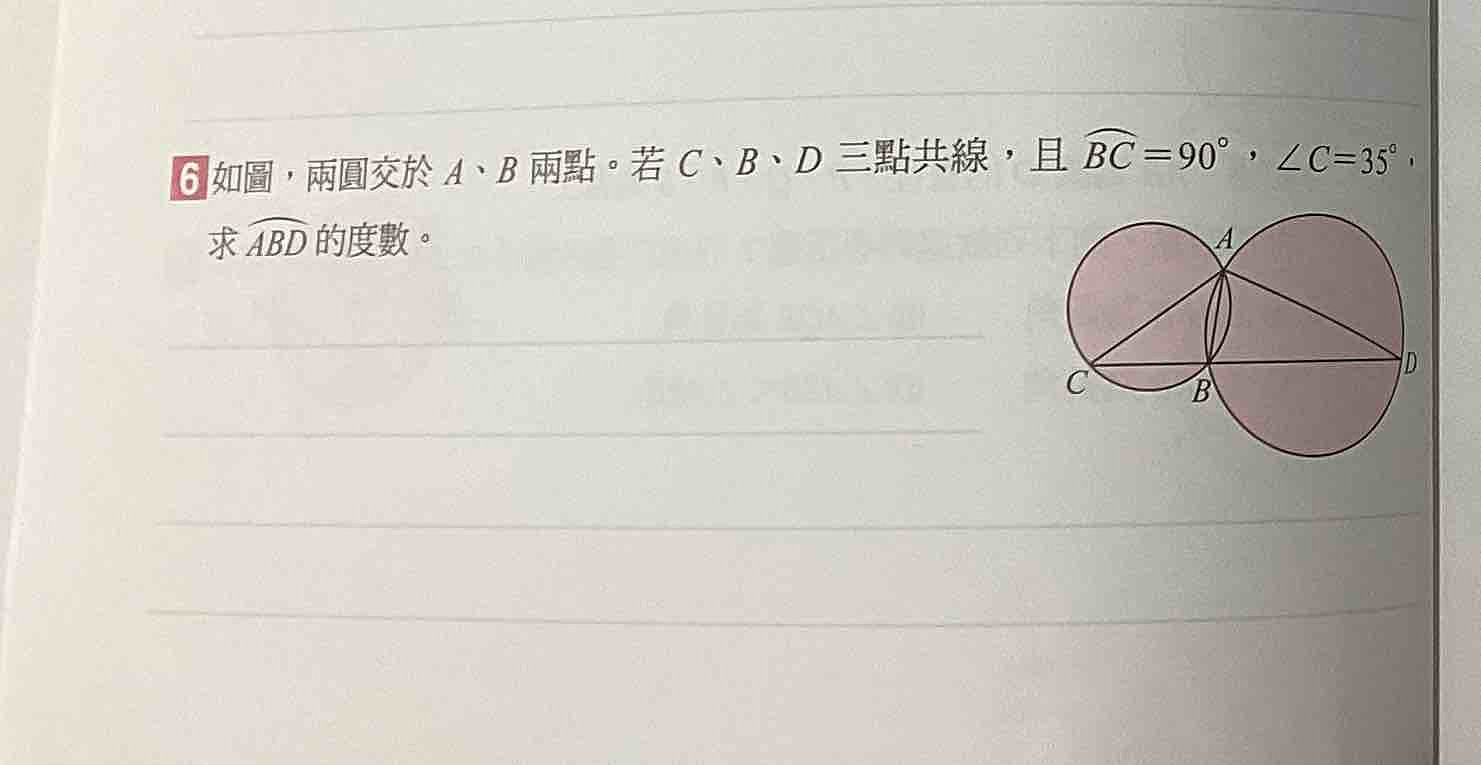 6 如圖，兩圓交於 A、B 兩點。若 C、B、D 三點共線，且 BC＝90°，∠C＝35°，
求 ABD 的度數。
A
C
B
D